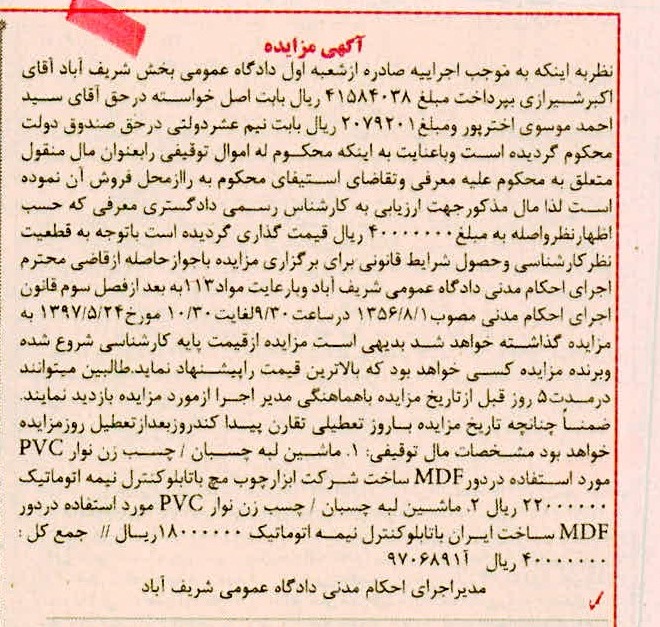 آگهی مزایده
نظربه اینکه به موجب اجراییه صادره ازشعبه اول دادگاه عمومی بخش شریف آباد آقای
اکبرشیرازی بپرداخت مبلغ ۴۱۵۸۴۰۳۸ ریال بابت اصل خواسته درحق آقای سید
احمد موسوی اخترپور ومبلغ۲۰۷۹۲۰۱ ریال بابت نیم عشردولتی درحق صندوق دولت
محکوم گردیده است وباعنایت به اینکه محکوم له اموال توقیفی رابعنوان مال منقول
متعلق به محکوم علیه معرفی وتقاضای استیفای محکوم به راازمحل فروش آن نموده
است لذا مال مذکورجهت ارزیابی به کارشناس رسمی دادگستری معرفی که حسب
اظهارنظرواصله به مبلغ۴۰۰۰۰۰۰۰ ریال قیمت گذاری گردیده است باتوجه به قطعیت
نظرکارشناسی وحصول شرایط قانونی برای برگزاری مزایده باجوازحاصله ازقاضی محترم
اجرای احکام مدنی دادگاه عمومی شریف آباد وبارعایت مواد۱۱۳به بعد ازفصل سوم قانون
اجرای احکام مدنی مصوب۱۳۵۶/۸/۱ درساعت۹/۳۰لغایت۱۰/۳۰ مورخ۱۳۹۷/۵/۲۴ به
مزایده گذاشته خواهد شد بدیهی است مزایده ازقیمت پایه کارشناسی شروع شده
وبرنده مزایده کسی خواهد بود که بالاترین قیمت راپیشنهاد نماید.طالبین میتوانند
درمدت۵ روز قبل ازتاریخ مزایده باهماهنگی مدیر اجرا ازمورد مزایده بازدید نمایند.
ضمناً چنانچه تاریخ مزایده باروز تعطیلی تقارن پیدا کندروزبعدازتعطیل روزمزایده
خواهد بود مشخصات مال توقیفی: ۱. ماشین لبه چسبان / چسب زن نوار PVC
مورد استفاده دردورMDF ساخت شرکت ابزارچوب مچ باتابلوکنترل نیمه اتوماتیک
۲۲۰۰۰۰۰۰ ریال ۲. ماشین لبه چسبان / چسب زن نوار PVC مورد استفاده دردور
MDF ساخت ایران باتابلوکنترل نیمه اتوماتیک ۱۸۰۰۰۰۰۰ریال // جمع کل :
۴۰۰۰۰۰۰۰ ریال آ۹۷۰۶۸۹۱
مدیراجرای احکام مدنی دادگاه عمومی شریف آباد